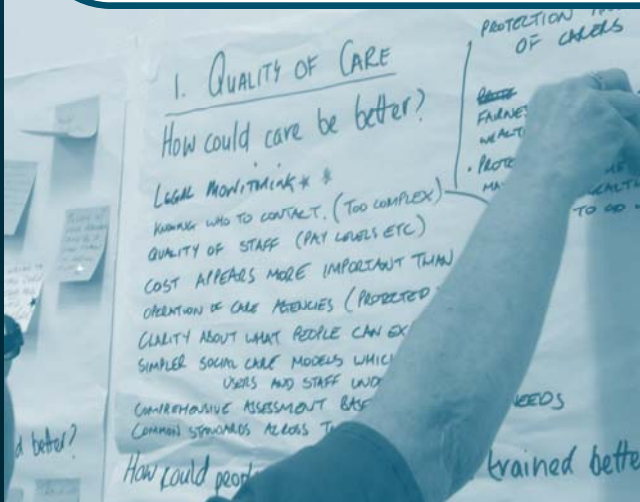 1. QUALITY OF CARE
How could care be better?
LEGAL MONITORING * *
KNOWING WHO TO CONTACT. (TOO COMPLEX)
QUALITY OF STAFF (PAY LEVELS ETC)
COST APPEARS MORE IMPORTANT THAN
OPERATION OF CARE AGENCIES (PROTECTED
CLARITY ABOUT WHAT PEOPLE CAN EX
SIMPLER SOCIAL CARE MODELS WHIC
USERS AND STAFF UND
COMPREHENSIVE ASSESSMENT BASE NEEDS
COMMON STANDARDS ACROSS T
How could peop trained bette
PROTECTION
OF CARERS
FAIRNES
WEALT
• PROTE
MA EALT
TO GO
d better?